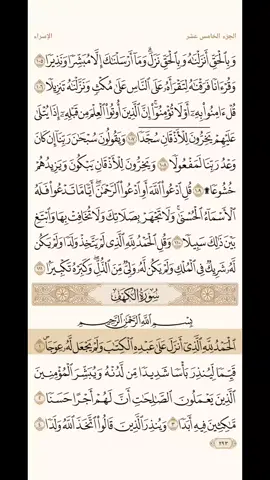 الجزء الخامس عشر
الإسراء
وَبِالْحَقِّ أَنزَلْنَاهُ وَبِالْحَقِّ نَزَلَ وَمَا أَرْسَلْنَاكَ إِلَّا مُبَشِّرًا وَنَذِيرًا ١٠٥
وَقُرْءَانًا فَرَقْنَاهُ لِتَقْرَأَهُ عَلَى النَّاسِ عَلَىٰ مُكْثٍ وَنَزَّلْنَاهُ تَنزِيلًا ١٠٦
قُلْ ءَامِنُوا بِهِ أَوْ لَا تُؤْمِنُوا إِنَّ الَّذِينَ أُوتُوا الْعِلْمَ مِن قَبْلِهِ إِذَا يُتْلَىٰ
عَلَيْهِمْ يَخِرُّونَ لِلْأَذْقَانِ سُجَّدًا ١٠٧ وَيَقُولُونَ سُبْحَٰنَ رَبِّنَا إِن كَانَ
وَعْدُ رَبِّنَا لَمَفْعُولًا ١٠٨ وَيَخِرُّونَ لِلْأَذْقَانِ يَبْكُونَ وَيَزِيدُهُمْ
خُشُوعًا ۩ ١٠٩ قُلِ ادْعُوا اللَّهَ أَوِ ادْعُوا الرَّحْمَٰنَ أَيًّا مَّا تَدْعُوا فَلَهُ
الْأَسْمَاءُ الْحُسْنَىٰ وَلَا تَجْهَرْ بِصَلَاتِكَ وَلَا تُخَافِتْ بِهَا وَابْتَغِ
بَيْنَ ذَٰلِكَ سَبِيلًا ١١٠ وَقُلِ الْحَمْدُ لِلَّهِ الَّذِي لَمْ يَتَّخِذْ وَلَدًا وَلَمْ يَكُن
لَّهُ شَرِيكٌ فِي الْمُلْكِ وَلَمْ يَكُن لَّهُ وَلِيٌّ مِّنَ الذُّلِّ وَكَبِّرْهُ تَكْبِيرًا ١١١
سُورَةُ الْكَهْفِ
بِسْمِ اللَّهِ الرَّحْمَٰنِ الرَّحِيمِ
الْحَمْدُ لِلَّهِ الَّذِي أَنزَلَ عَلَىٰ عَبْدِهِ الْكِتَٰبَ وَلَمْ يَجْعَل لَّهُ عِوَجًا ١
قَيِّمًا لِّيُنذِرَ بَأْسًا شَدِيدًا مِّن لَّدُنْهُ وَيُبَشِّرَ الْمُؤْمِنِينَ
الَّذِينَ يَعْمَلُونَ الصَّٰلِحَٰتِ أَنَّ لَهُمْ أَجْرًا حَسَنًا ٢
مَّٰكِثِينَ فِيهِ أَبَدًا ٣ وَيُنذِرَ الَّذِينَ قَالُوا اتَّخَذَ اللَّهُ وَلَدًا ٤
٢٩٣